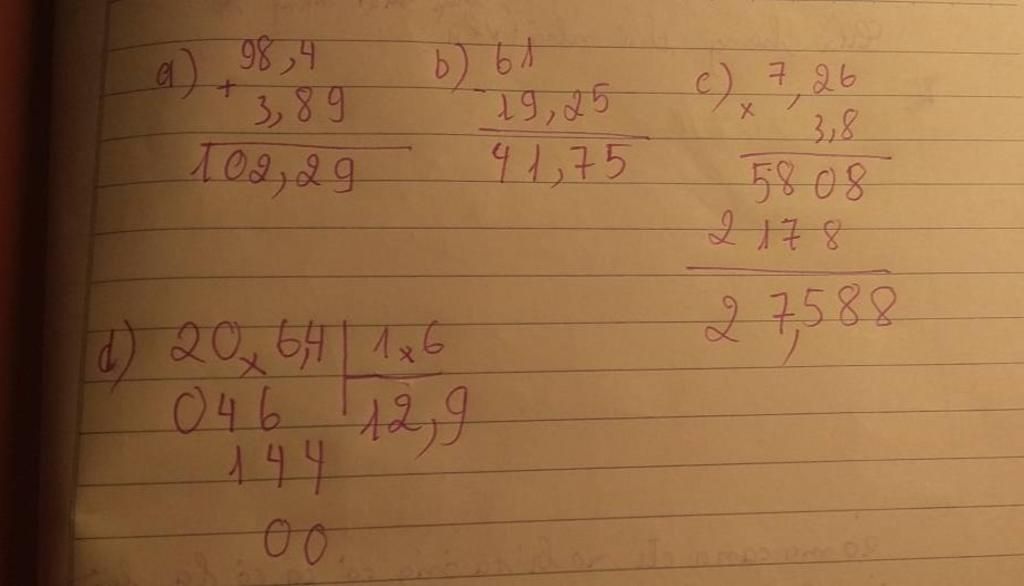 a) 98,4
+ 3,89
102,29
b) 61
- 19,25
41,75
c) 7,26
x 3,8
5808
2178
27,588
d) 20x6,4 | 1x6
046 | 12,9
144
00